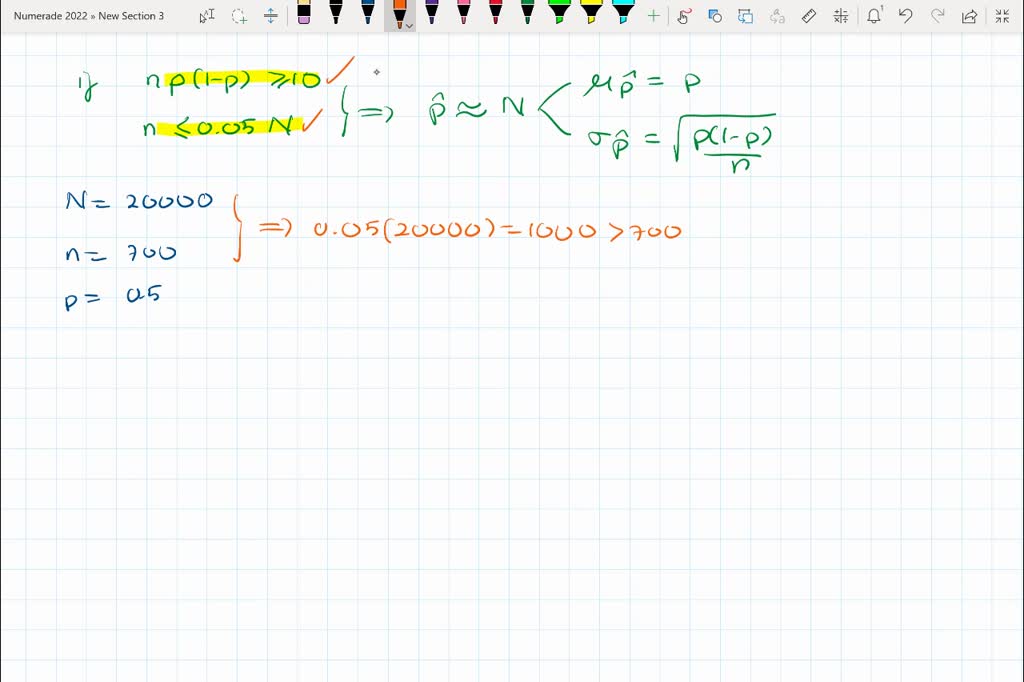 Numerade 2022 » New Section 3
if np(1-p) ≥10 ✓
n ≤0.05 N ✓
} => p̂ ≈ N < μp̂ = p
σp̂ = √p(1-p)/n
N = 20000
n = 700
} => 0.05(20000) = 1000 > 700
p = 0.5